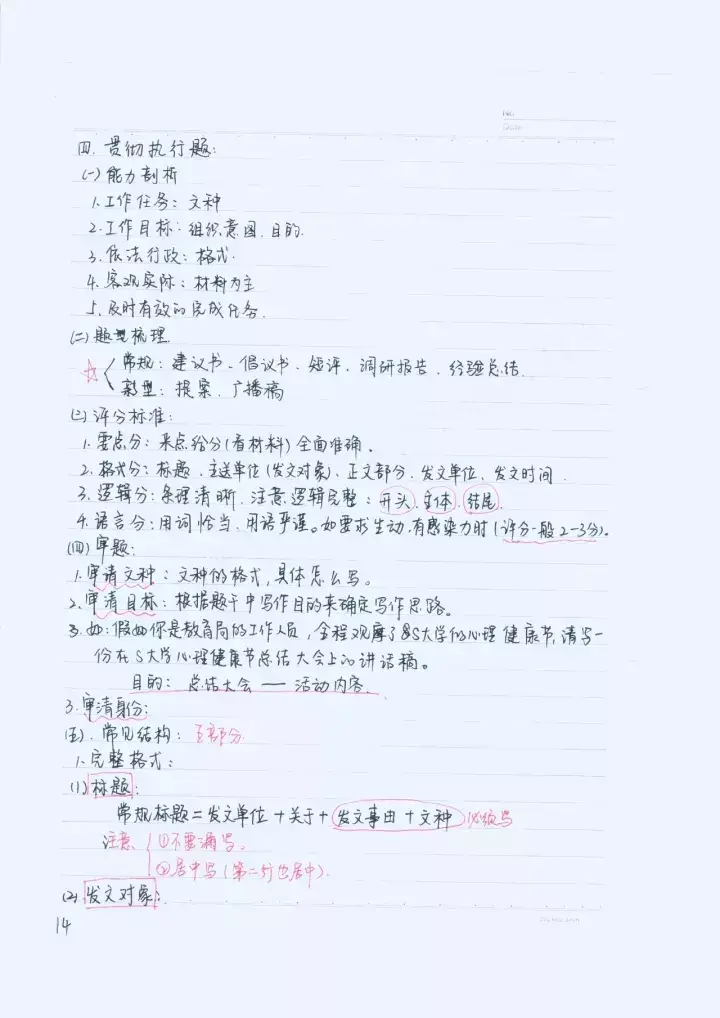 No.
Date
四. 贯彻执行题:
(一) 能力剖析
1. 工作任务: 文种
2. 工作目标: 组织意图. 目的.
3. 依法行政: 格式.
4. 客观实际: 材料为主
5. 及时有效的完成任务.
(二) 题型梳理.
☆ 常规: 建议书、倡议书、短评、调研报告、经验总结.
新型: 提案. 广播稿
(三) 评分标准:
1. 要点分: 采点给分(看材料)全面准确.
2. 格式分: 标题、主送单位(发文对象)、正文部分、发文单位、发文时间.
3. 逻辑分: 条理清晰. 注意逻辑完整: 开头. 主体. 结尾.
4. 语言分: 用词恰当、用语严谨。如要求生动, 有感染力时(评分一般2-3分)。
(四) 审题:
1. 审清文种: 文种的格式, 具体怎么写。
2. 审清目标: 根据题干中写作目的来确定写作思路。
如: 假如你是教育局的工作人员, 全程观摩了S大学的心理健康节, 请写一
份在S大学心理健康节总结大会上的讲话稿。
目的: 总结大会 —— 活动内容.
3. 审清身份:
(五). 常见结构: 五部分.
1. 完整格式:
(1) 标题:
常规标题=发文单位+关于+发文事由+文种 必须写
注意 ①不要漏写.
②居中写(第二行也居中).
(2) 发文对象:
14